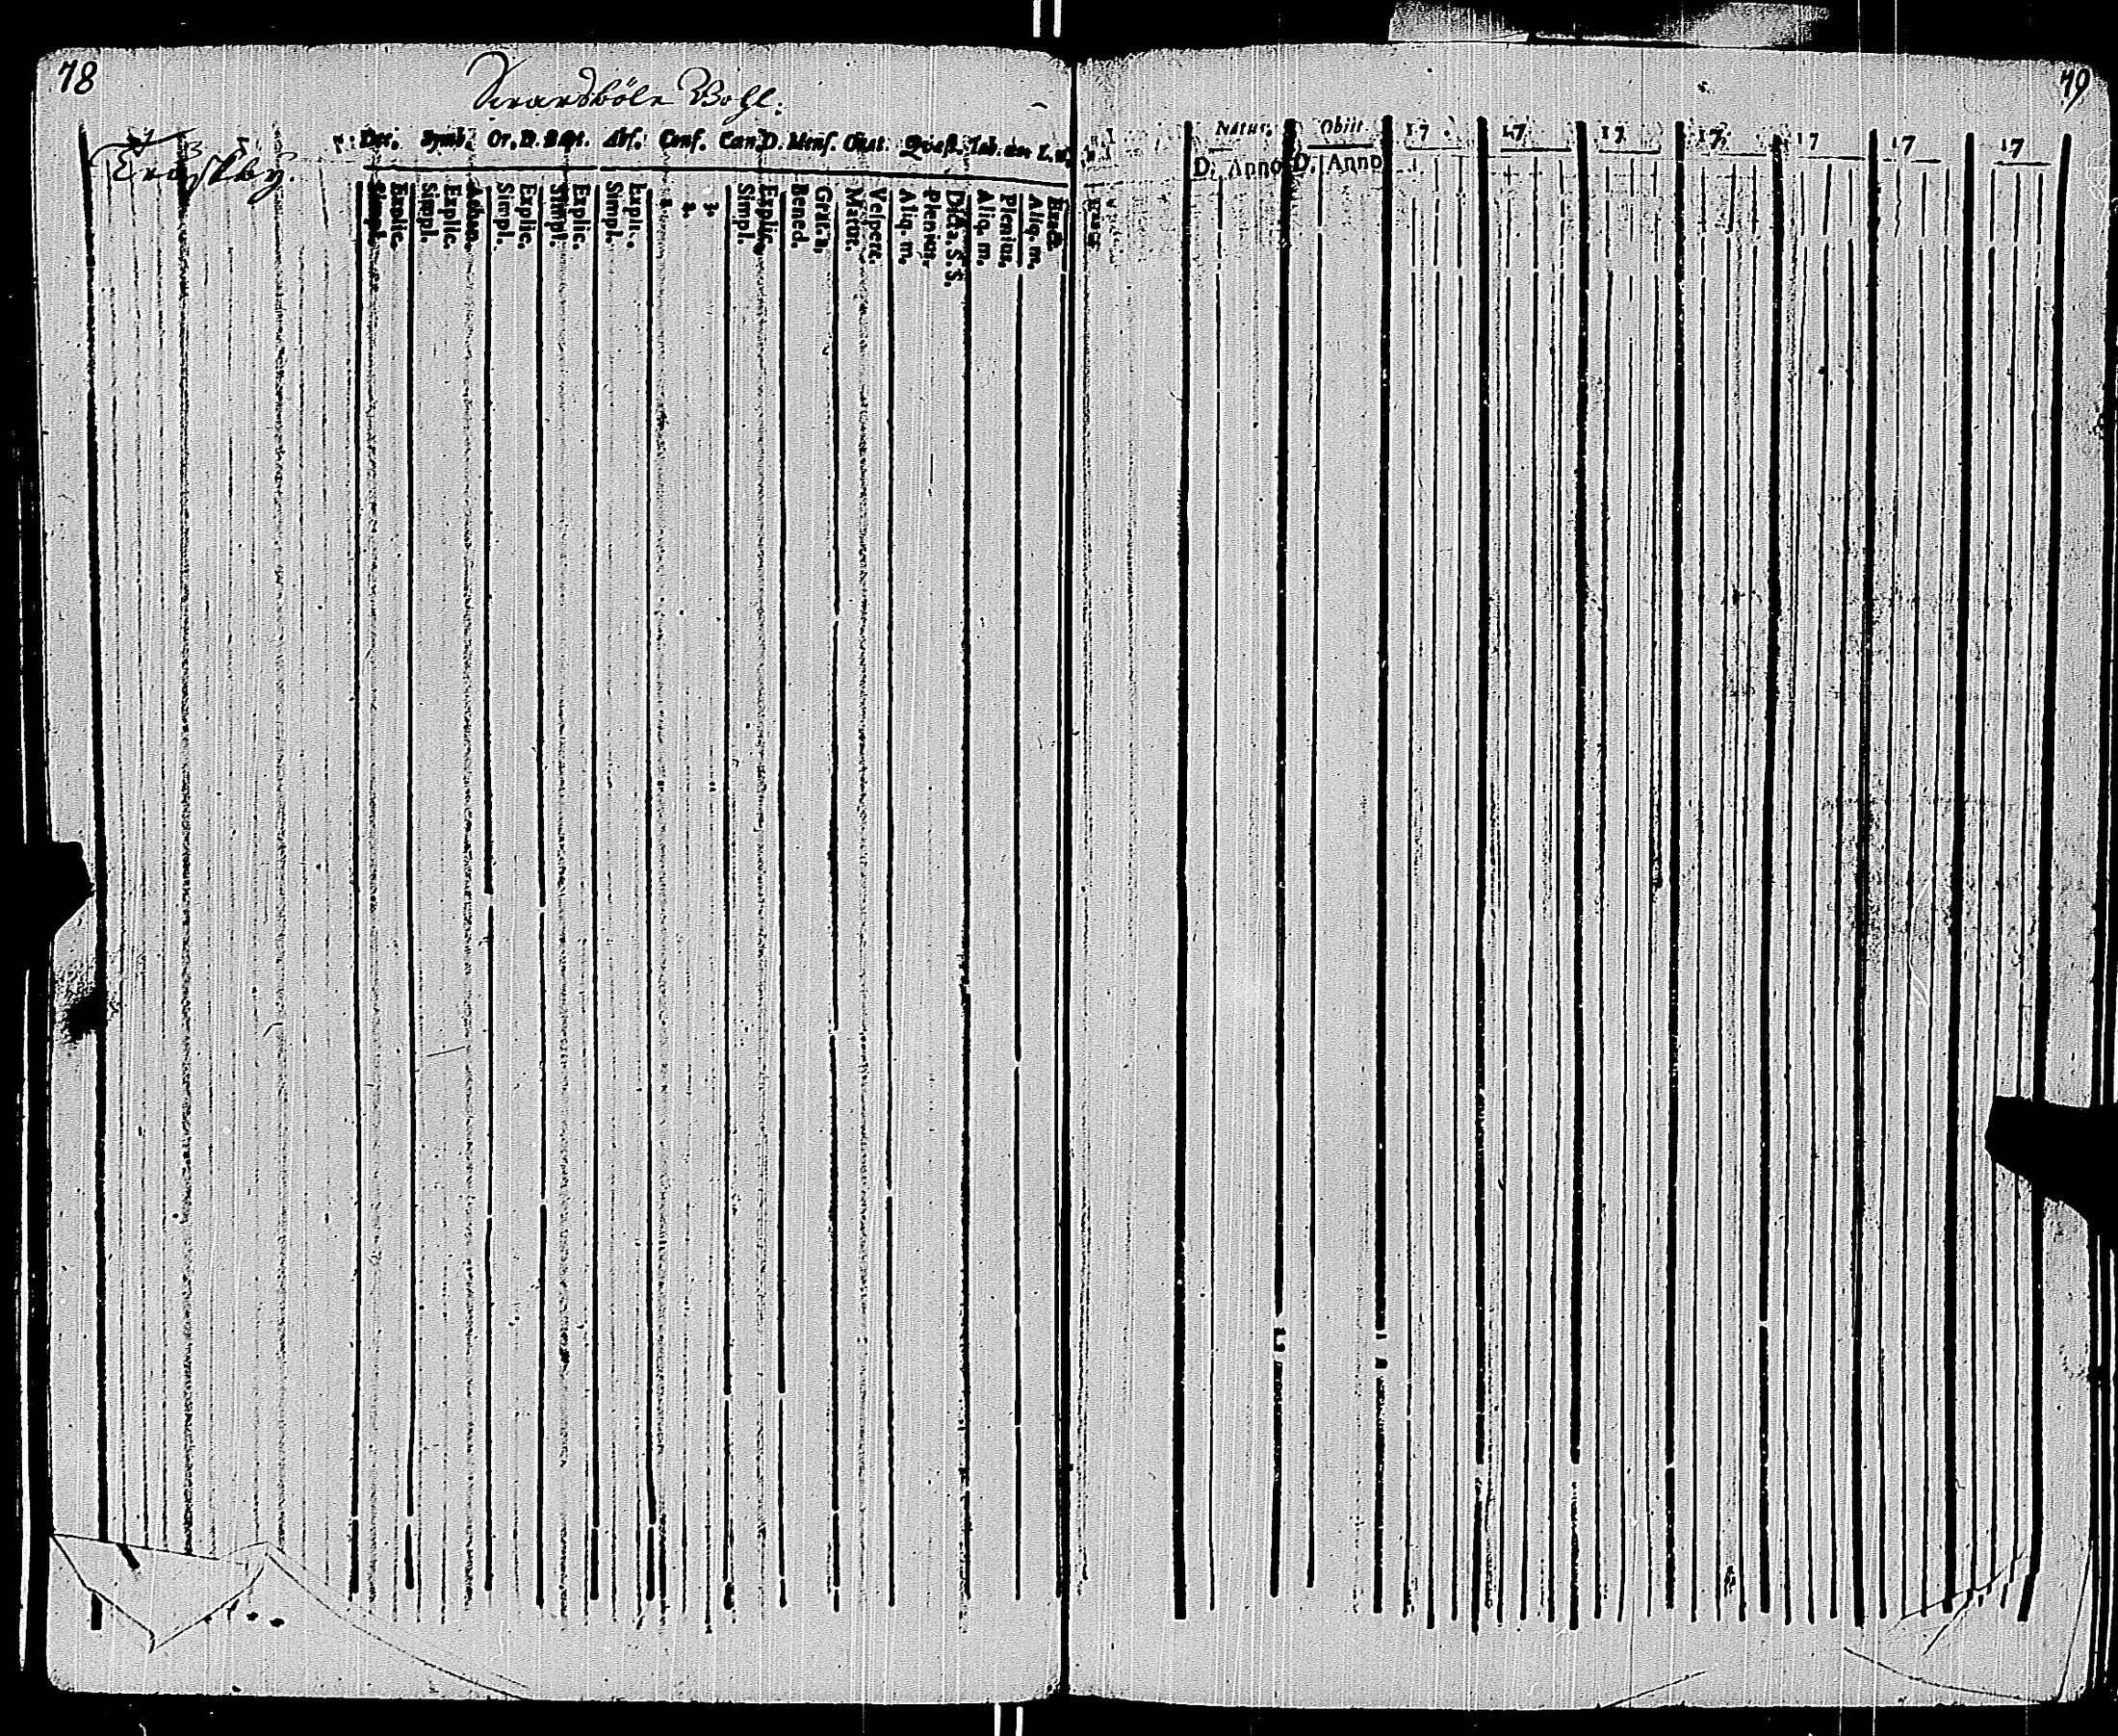 78
Svarsböle Bohl:
Trästby.
Dec. Symb. Or. D. Bapt. Abs. Conf. Cœn. D. Mens. Orat. Quæst. Tab. œc. L.
Simpl. Explic. Simpl. Explic. Athan. Simpl. Explic. Simpl. Explic. Simpl. Explic. 1. 2. 3. Simpl. Explic. Bened. Grat. a. Matut. Vespert. Aliq. m. Plenius. Dicta. S. S. Aliq. m. Plenius. Aliq. m. Exact.
79
Natus. Obiit 17 17 17 17 17 17 17
D. Anno D. Anno